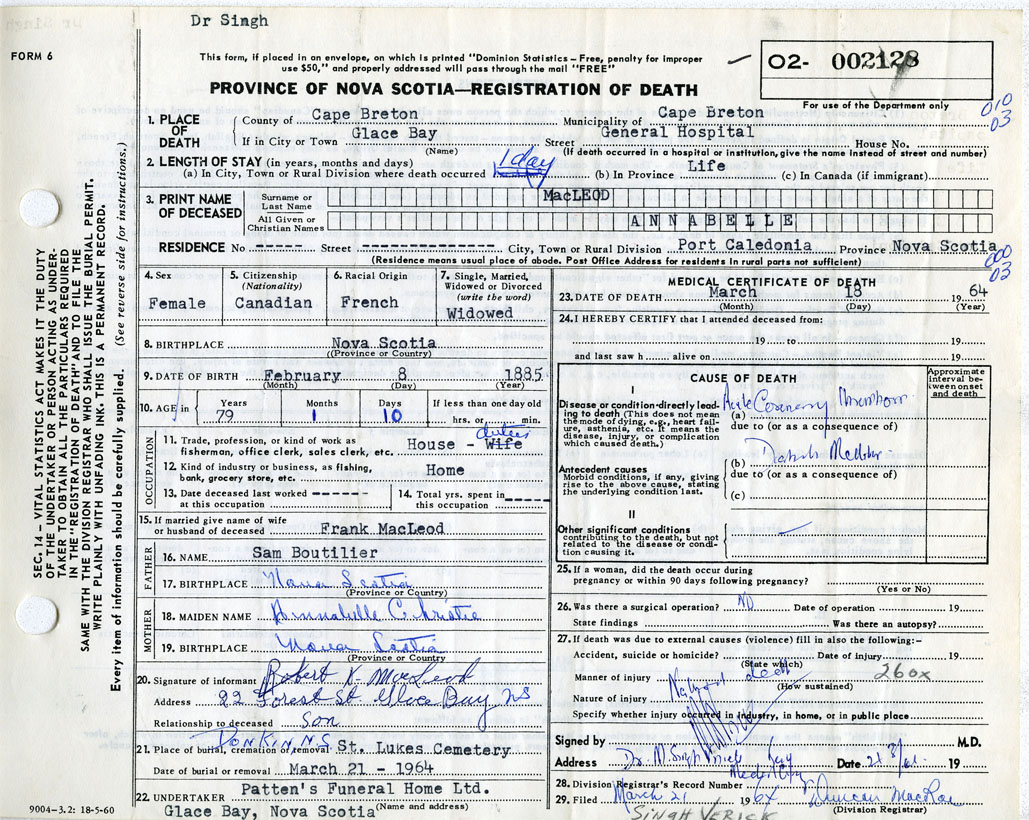 Dr Singh
FORM 6
This form, if placed in an envelope, on which is printed "Dominion Statistics – Free, penalty for improper
use $50," and properly addressed will pass through the mail "FREE"
O2- 002128
PROVINCE OF NOVA SCOTIA—REGISTRATION OF DEATH
For use of the Department only
010
03
1. PLACE OF DEATH
County of Cape Breton Municipality of Cape Breton
If in City or Town Glace Bay Street General Hospital House No.
(Name) (If death occurred in a hospital or institution, give the name instead of street and number)
2. LENGTH OF STAY (in years, months and days)
(a) In City, Town or Rural Division where death occurred 1 day (b) In Province Life (c) In Canada (if immigrant)
3. PRINT NAME OF DECEASED
Surname or Last Name MacLEOD
All Given or Christian Names ANNABELLE
RESIDENCE No ----- Street -------------- City, Town or Rural Division Port Caledonia Province Nova Scotia
(Residence means usual place of abode. Post Office Address for residents in rural parts not sufficient)
000
03
4. Sex Female
5. Citizenship (Nationality) Canadian
6. Racial Origin French
7. Single, Married, Widowed or Divorced (write the word) Widowed
8. BIRTHPLACE Nova Scotia
(Province or Country)
9. DATE OF BIRTH February 8 1885
(Month) (Day) (Year)
10. AGE in Years 79 Months 1 Days 10 If less than one day old hrs. or min.
OCCUPATION
11. Trade, profession, or kind of work as fisherman, office clerk, sales clerk, etc. House - Wife duties
12. Kind of industry or business, as fishing, bank, grocery store, etc. Home
13. Date deceased last worked at this occupation -------
14. Total yrs. spent in this occupation -----
15. If married give name of wife or husband of deceased Frank MacLeod
FATHER
16. NAME Sam Boutilier
17. BIRTHPLACE Nova Scotia
(Province or Country)
MOTHER
18. MAIDEN NAME Annabelle Christie
19. BIRTHPLACE Nova Scotia
(Province or Country)
20. Signature of informant Robert K. MacLeod
Address 22 Forest St Glace Bay NS
Relationship to deceased Son
21. Place of burial, cremation or removal DONKIN N.S. St. Lukes Cemetery
Date of burial or removal March 21 - 1964
22. UNDERTAKER Patten's Funeral Home Ltd.
Glace Bay, Nova Scotia (Name and address)
9004-3.2: 18-5-60
MEDICAL CERTIFICATE OF DEATH
23. DATE OF DEATH March 18 1964
(Month) (Day) (Year)
24. I HEREBY CERTIFY that I attended deceased from:
19 to 19
and last saw h alive on 19
CAUSE OF DEATH
Approximate interval between onset and death
I
Disease or condition directly leading to death (This does not mean the mode of dying, e.g., heart failure, asthenia, etc. It means the disease, injury, or complication which caused death.)
(a) Acute Coronary
due to (or as a consequence of)
Antecedent causes
Morbid conditions, if any, giving rise to the above cause, stating the underlying condition last.
(b)
due to (or as a consequence of)
(c)
II
Other significant conditions
contributing to the death, but not related to the disease or condition causing it.
25. If a woman, did the death occur during pregnancy or within 90 days following pregnancy?
(Yes or No)
26. Was there a surgical operation? NO Date of operation 19
State findings Was there an autopsy?
27. If death was due to external causes (violence) fill in also the following:–
Accident, suicide or homicide? Date of injury 19
(State which)
Manner of injury Natural death 260x
(How sustained)
Nature of injury
Specify whether injury occurred in industry, in home, or in public place
Signed by M.D.
Address Dr. M Singh Date 21/3/64 19
28. Division Registrar's Record Number
29. Filed March 21 1964 Duncan MacRae
(Division Registrar)
SINGH VERICK
SEC. 14 – VITAL STATISTICS ACT MAKES IT THE DUTY
OF THE UNDERTAKER OR PERSON ACTING AS UNDER-
TAKER TO OBTAIN ALL THE PARTICULARS REQUIRED
IN THE "REGISTRATION OF DEATH" AND TO FILE THE
SAME WITH THE DIVISION REGISTRAR WHO SHALL ISSUE THE BURIAL PERMIT.
WRITE PLAINLY WITH UNFADING INK. THIS IS A PERMANENT RECORD.
Every item of information should be carefully supplied. (See reverse side for instructions.)